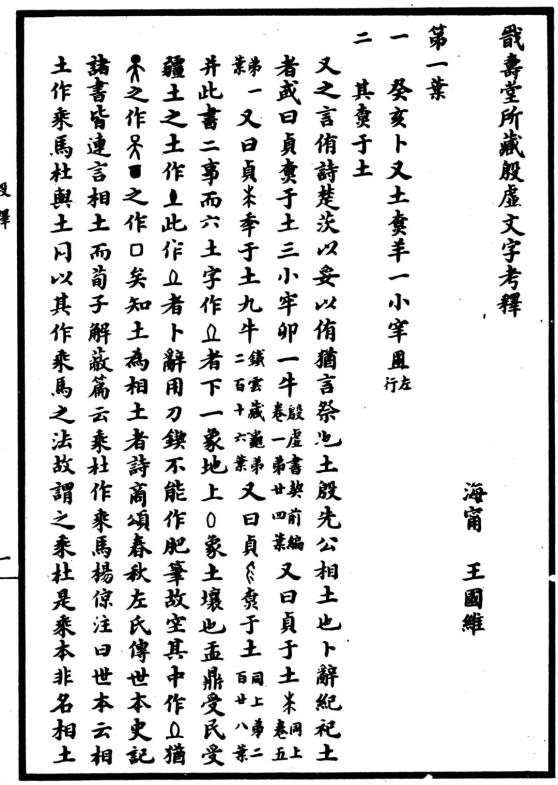 戩壽堂所藏殷虛文字考釋
海甯 王國維
第一葉
一 癸亥卜又土䙴羊一小宰𡆥左行
二 其䙴于土
又之言侑詩楚茨以妥以侑猶言祭也土殷先公相土也卜辭紀祀土
者或曰貞䙴于土三小牢卯一牛殷虛書契前編卷一第廿四葉又曰貞于土米同上卷五
第一葉又曰貞米年于土九牛鐵雲藏龜第二百十六葉又曰貞䙴于土同上第二百廿八葉
并此書二事而六土字作者下一象地上象土壤也盂鼎受民受
疆土之土作此作者卜辭用刀鍥不能作肥筆故空其中作猶
之作之作口矣知土為相土者詩商頌春秋左氏傳世本史記
諸書皆連言相土而荀子解蔽篇云乘杜作乘馬楊倞注曰世本云相
土作乘馬杜與土同以其作乘馬之法故謂之乘杜是乘本非名相土
殷釋
一